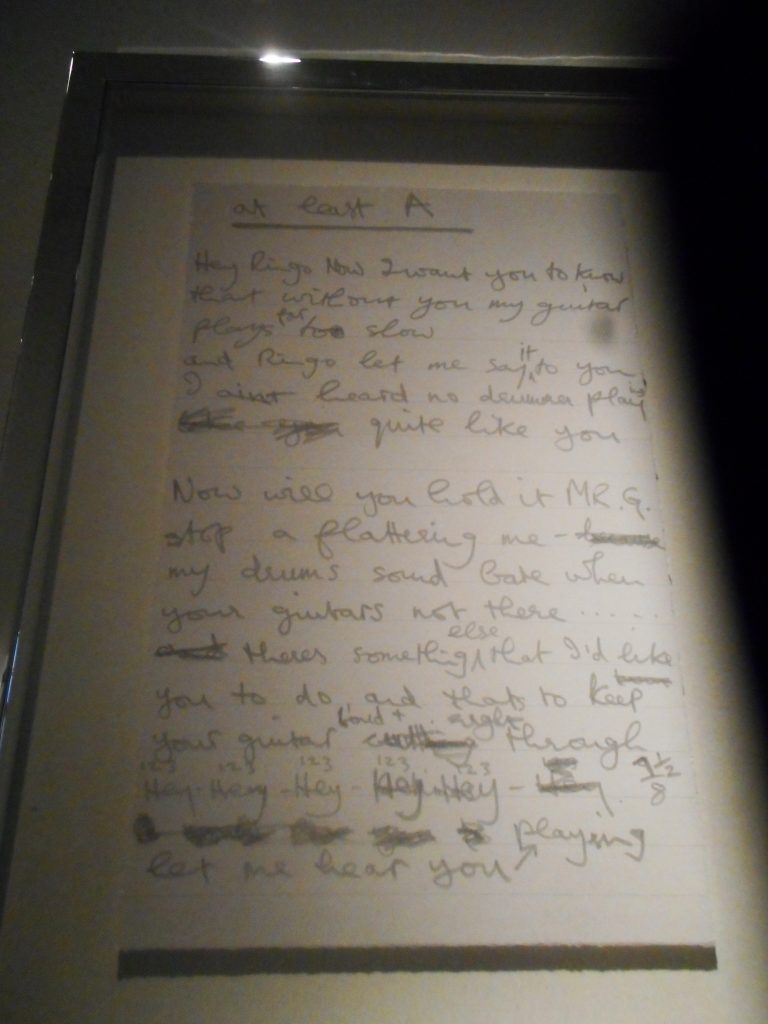 at least A
Hey Ringo Now I want you to know
that without you my guitar
plays far too slow
and Ringo let me say it to you
I aint heard no drummer play
quite like you
Now will you hold it MR. G.
stop a flattering me -
my drums sound bare when
your guitars not there ......
theres something else that I'd like
you to do and thats to keep
your guitar loud + through
123 123 123 123 123
Hey - Hey - Hey - Hey - Hey -
playing
let me hear you